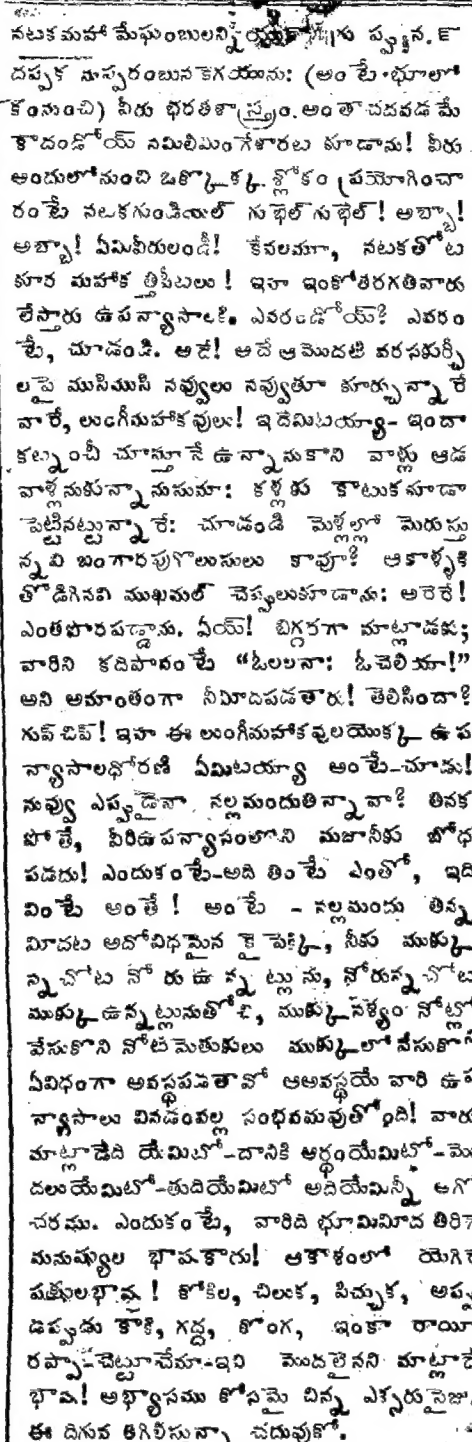 నటకమహా మేఘంబులన్ని
దప్పక నుస్పరంబున కెగయును: (అం టే-భూలో
కంనుంచి) వీరు భరతశాస్త్రం. అంతా చదవడ మే
కాదండోయ్ నమిలిమింగేశారట కూడాను! వీరు
అందులోనుంచి ఒక్కొక్క శ్లోకం ప్రయోగించా
రంటే నటకగుండియల్ గుభేల్ గుభేల్! అబ్బా!
అబ్బా! ఏమివీరులండీ! కేవలమూ, నటకతోట
కూర మహాక త్తిపీటలు! ఇహ ఇంకోతెరగతివారు
లేస్తారు ఉపన్యాసాలకి. ఎవరండోయ్? ఎవరం
టే, చూడండి. అదే! అదే ఆమొదటి వరసకుర్చీ
లపై ముసిముసి నవ్వులు నవ్వుతూ కూర్చున్నా రే
వారే, లుంగీమహాకవులు! ఇదేమిటయ్యా- ఇందా
కట్నుంచీ చూస్తూనే ఉన్నానుకాని వాళ్లు ఆడ
వాళ్లనుకున్నానుసుమా: కళ్లకు కాటుకసూడా
పెట్టినట్టున్నారే: చూడండి మెళ్లల్లో మెరుస్తు
న్నవి బంగారపుగొలుసులు కావూ? ఆకాళ్ళకి
తొడిగినవి ముఖమల్ చెప్పులుకూడాను: అరెరే!
ఎంతపొరపడ్డాను. ఏయ్! బిగ్గరగా మాట్లాడకు;
వారిని కదిపావంటే "ఓలలనా: ఓచెలియా!"
అని అమాంతంగా నీమీదపడతారు! తెలిసిందా?
గుప్‌చిప్! ఇహ ఈ లుంగీమహాకవులయొక్క ఉప
న్యాసాలధోరణి ఏమిటయ్యా అంటే-చూడు!
నువ్వు ఎప్పుడైనా నల్లమందుతిన్నావా? తినక
పోతే, వీరిఉపన్యాసంలోని మజానీకు బోధ
పడదు! ఎందుకంటే-అది తింటే ఎంతో, ఇది
వింటే అంతే! అంటే - నల్లమందు తిన్న
మీదట అదోవిధమైన కై పెక్కి, నీకు ముక్కు
న్న చోట నోరు ఉన్నట్లును, నోరున్న చోట
ముక్కు ఉన్నట్లునుతోచి, ముక్కునశ్యం నోట్లో
వేసుకొని నోటిమెతుకులు ముక్కులో వేసుకొని
ఏవిధంగా అవస్థపడతావో ఆఅవస్థయే వారి ఉప
న్యాసాలు వినడంవల్ల సంభవమవుతోంది! వారు
మాట్లాడేది యేమిటో-దానికి అర్థంయేమిటో-మొ
దలుయేమిటో-తుదియేమిటో అదియేమిన్నీ అగో
చరము. ఎందుకంటే, వారిది భూమిమీద తిరిగే
మనుష్యుల భాషకాదు! ఆకాశంలో యెగిరే
పక్షులభాష! కోకిల, చిలుక, పిచ్చుక, అప్ప
డప్పుడు కాకి, గద్ద, కొంగ, ఇంకా రాయీ
రప్పా-చెట్టూచేమా-ఇవి మొదలైనని మాట్లాడే
భాష! అభ్యాసము కోసమై చిన్న ఎక్సరుసైజు
ఈ దిగువ తగిలిస్తున్నా చదువుకో.